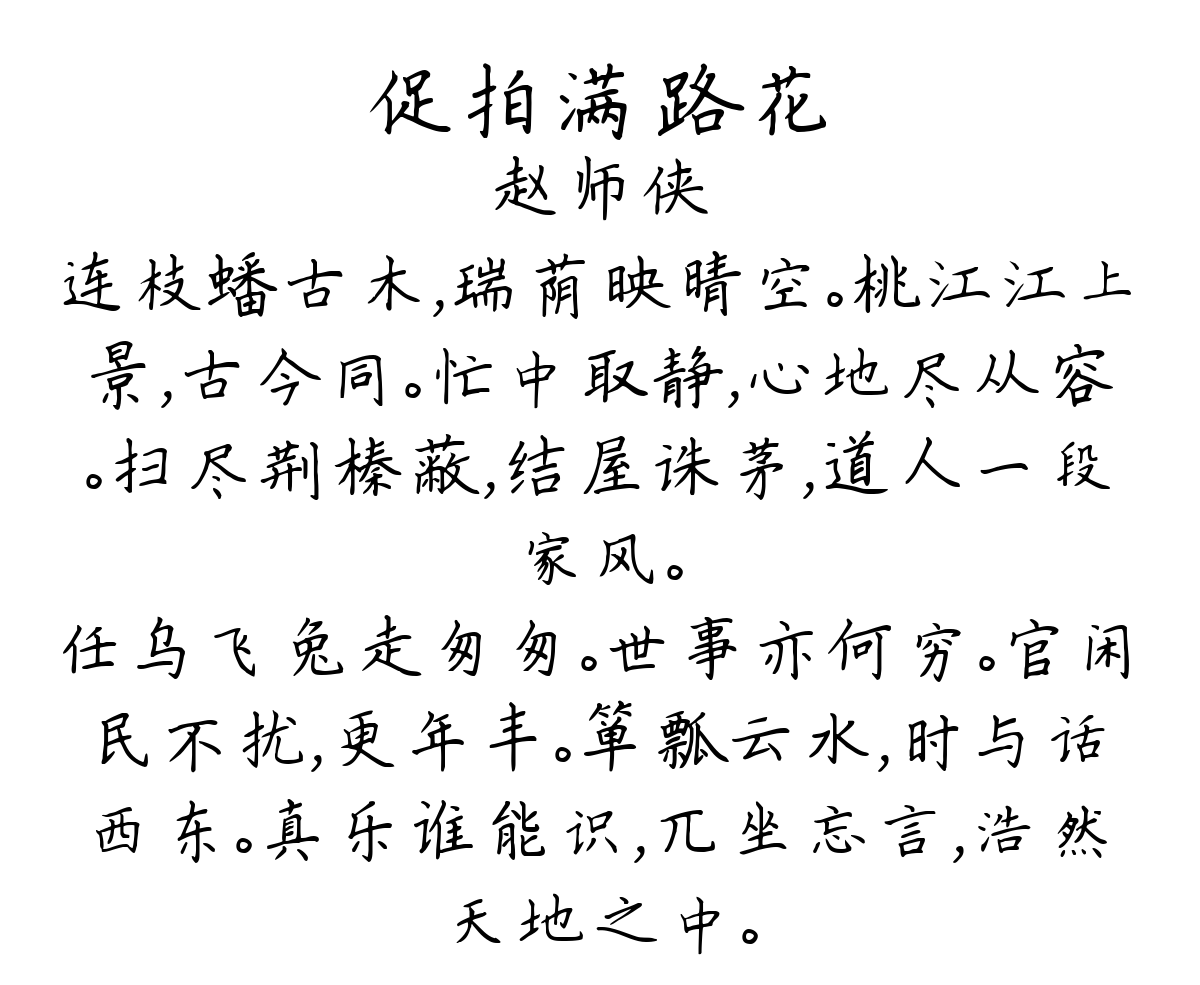 促拍满路花
赵师侠
连枝蟠古木,瑞荫映晴空。桃江江上
景,古今同。忙中取静,心地尽从容
。扫尽荆榛蔽,结屋诛茅,道人一段
家风。
任乌飞兔走匆匆。世事亦何穷。官闲
民不扰,更年丰。箪瓢云水,时与话
西东。真乐谁能识,兀坐忘言,浩然
天地之中。